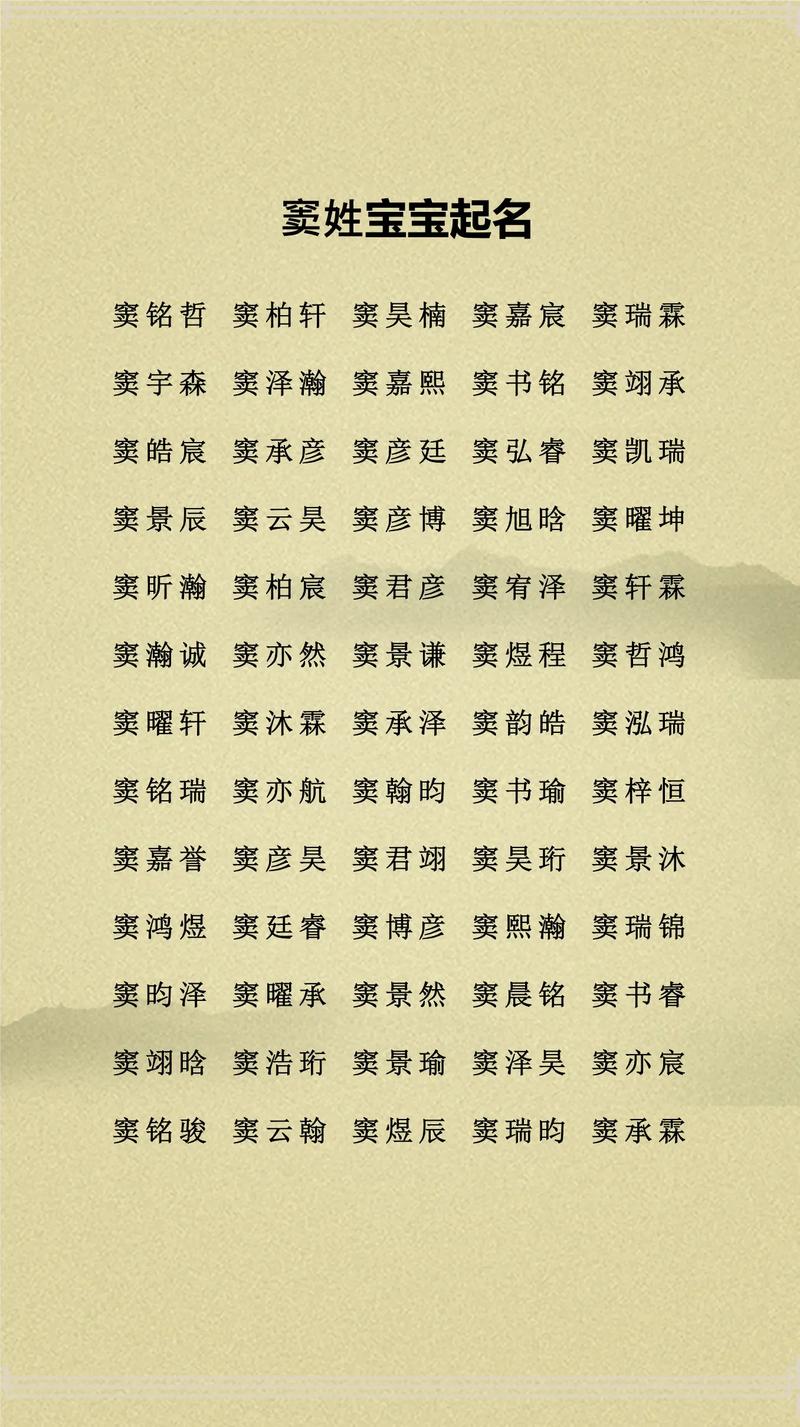 窦姓宝宝起名
窦铭哲 窦柏轩 窦昊楠 窦嘉宸 窦瑞霖
窦宇森 窦泽瀚 窦嘉熙 窦书铭 窦翊承
窦皓宸 窦承彦 窦彦廷 窦弘睿 窦凯瑞
窦景辰 窦云昊 窦彦博 窦旭晗 窦曜坤
窦昕瀚 窦柏宸 窦君彦 窦宥泽 窦轩霖
窦瀚诚 窦亦然 窦景谦 窦煜程 窦哲鸿
窦曜轩 窦沐霖 窦承泽 窦韵皓 窦泓瑞
窦铭瑞 窦亦航 窦翰昀 窦书瑜 窦梓恒
窦嘉誉 窦彦昊 窦君翊 窦昊珩 窦景沐
窦鸿煜 窦廷睿 窦博彦 窦熙瀚 窦瑞锦
窦昀泽 窦曜承 窦景然 窦晨铭 窦书睿
窦翊晗 窦浩珩 窦景瑜 窦泽昊 窦亦宸
窦铭骏 窦云翰 窦煜辰 窦瑞昀 窦承霖